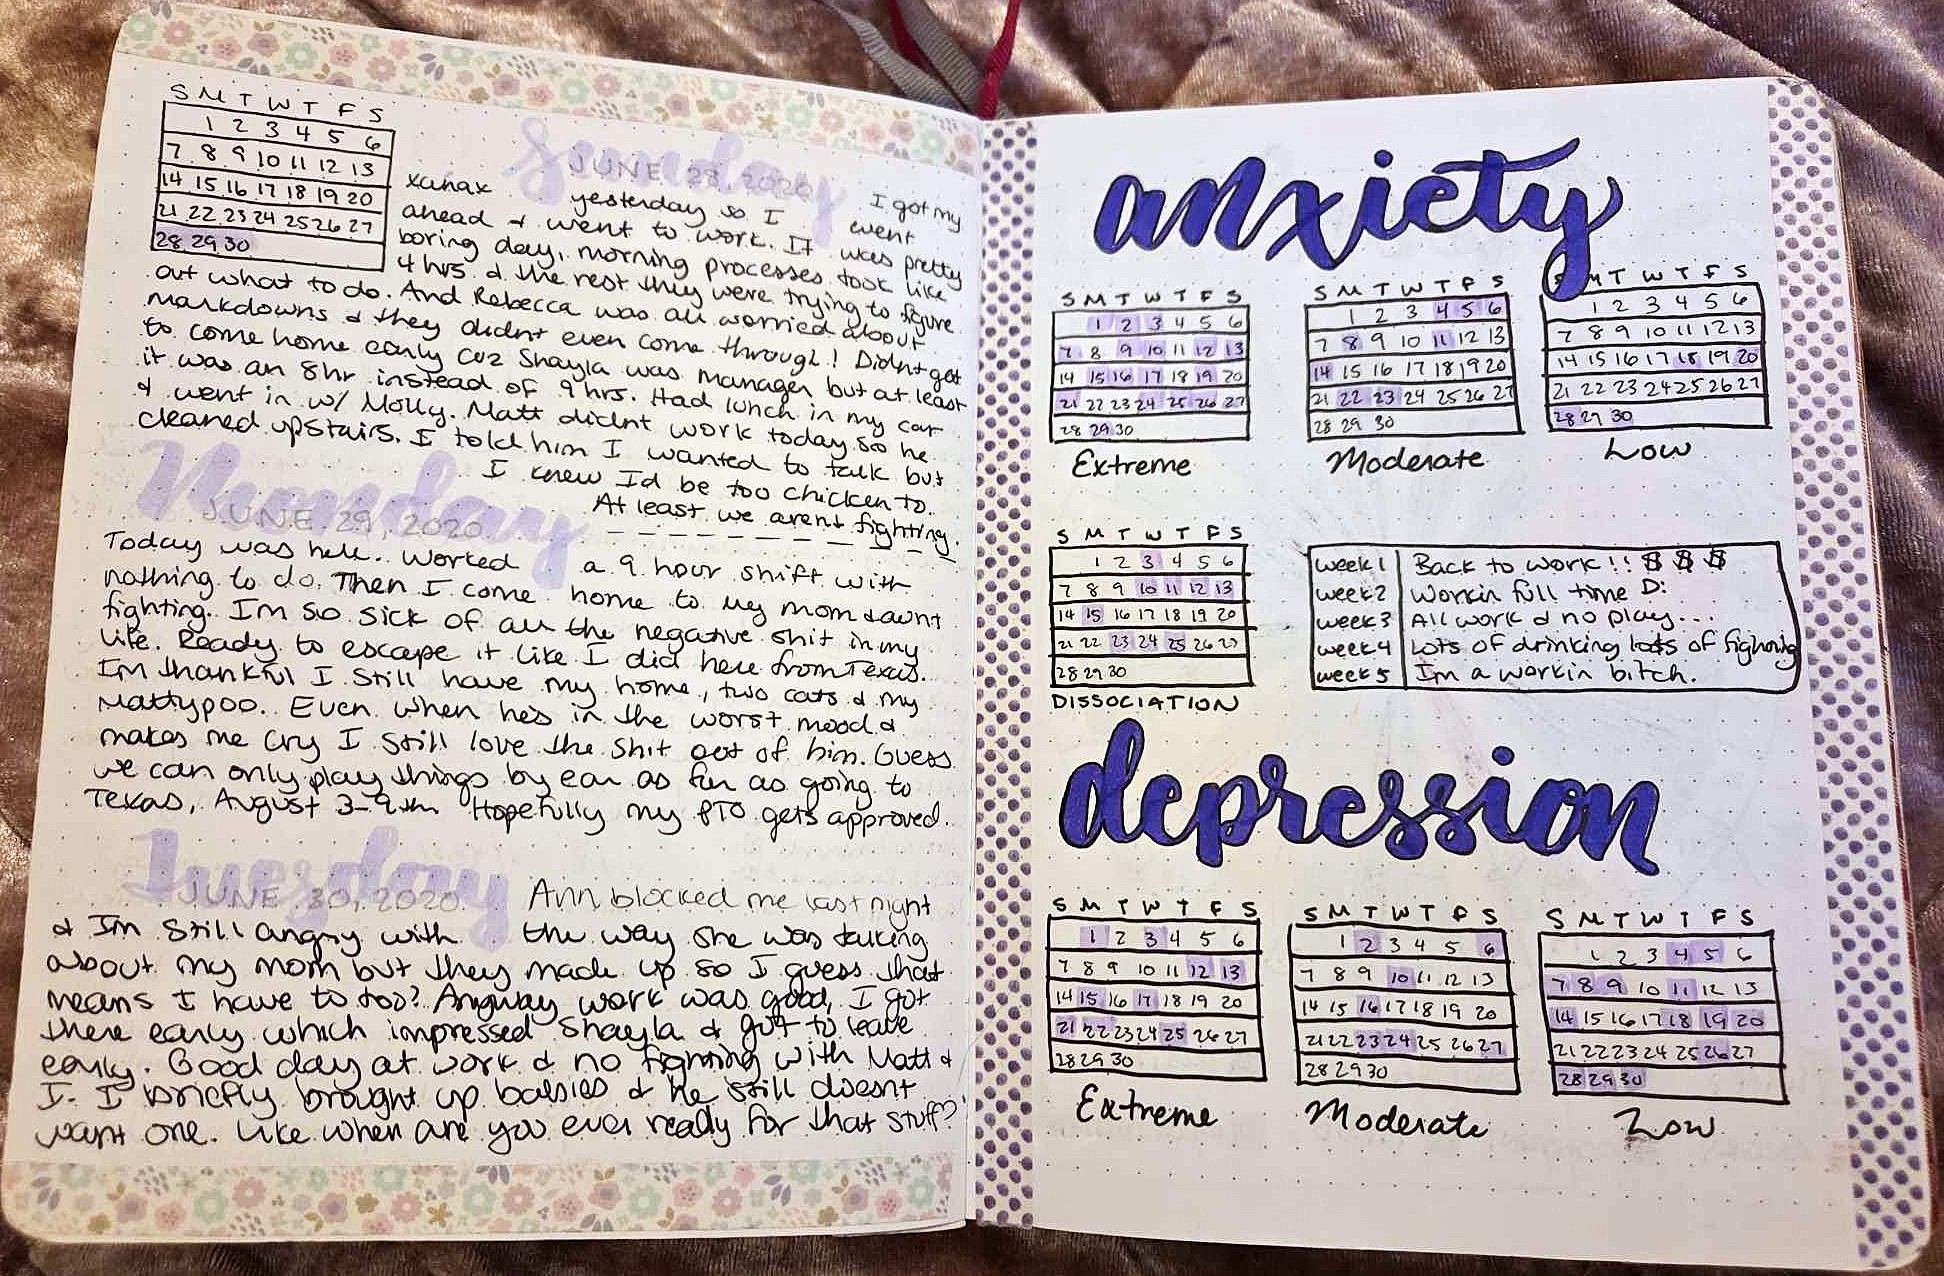 S M T W T F S
1 2 3 4 5 6
7 8 9 10 11 12 13
14 15 16 17 18 19 20
21 22 23 24 25 26 27
28 29 30
Sunday
JUNE 28, 2020
I got my
xanax yesterday so I went
ahead & went to work. It was pretty
boring day, morning processes took like
4 hrs & the rest they were trying to figure
out what to do. And Rebecca was all worried about
markdowns & they didnt even come through! Didnt get
to come home early cuz Shayla was manager but at least
it was an 8hr instead of 9 hrs. Had lunch in my car
& went in w/ Molly. Matt didnt work today so he
cleaned upstairs. I told him I wanted to talk but
I knew Id be too chicken to.
At least we arent fighting.
Monday
JUNE 29, 2020
Today was hell. Worked a 9 hour shift with
nothing to do. Then I come home to my mom & aunt
fighting. Im so sick of all the negative shit in my
life. Ready to escape it like I did here from Texas.
Im thankful I still have my home, two cats & my
Mattypoo. Even when hes in the worst mood &
makes me cry I still love the shit out of him. Guess
we can only play things by ear as far as going to
Texas, August 3-9th Hopefully my PTO gets approved.
Tuesday
JUNE 30, 2020
Ann blocked me last night
& Im still angry with the way she was talking
about my mom but they made up so I guess that
means I have to too? Anyway work was good, I got
there early which impressed Shayla & got to leave
early. Good day at work & no fighting with Matt &
I. I briefly brought up babies & he still doesnt
want one. Like when are you ever ready for that stuff?
anxiety
S M T W T F S
1 2 3 4 5 6
7 8 9 10 11 12 13
14 15 16 17 18 19 20
21 22 23 24 25 26 27
28 29 30
Extreme
S M T W T F S
1 2 3 4 5 6
7 8 9 10 11 12 13
14 15 16 17 18 19 20
21 22 23 24 25 26 27
28 29 30
Moderate
S M T W T F S
1 2 3 4 5 6
7 8 9 10 11 12 13
14 15 16 17 18 19 20
21 22 23 24 25 26 27
28 29 30
Low
S M T W T F S
1 2 3 4 5 6
7 8 9 10 11 12 13
14 15 16 17 18 19 20
21 22 23 24 25 26 27
28 29 30
DISSOCIATION
week 1 Back to work!! $ $ $
week 2 Workin full time D:
week 3 All work & no play...
week 4 Lots of drinking lots of fighting
week 5 Im a workin bitch.
depression
S M T W T F S
1 2 3 4 5 6
7 8 9 10 11 12 13
14 15 16 17 18 19 20
21 22 23 24 25 26 27
28 29 30
Extreme
S M T W T F S
1 2 3 4 5 6
7 8 9 10 11 12 13
14 15 16 17 18 19 20
21 22 23 24 25 26 27
28 29 30
Moderate
S M T W T F S
1 2 3 4 5 6
7 8 9 10 11 12 13
14 15 16 17 18 19 20
21 22 23 24 25 26 27
28 29 30
Low